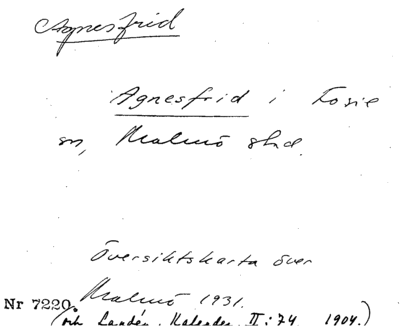 Agnesfrid
Agnesfrid i Fosie
sn, Malmö stad.
Översiktskarta över
Malmö 1931.
Nr 7220.
(och Landén, Kalender II: 74 1904.)